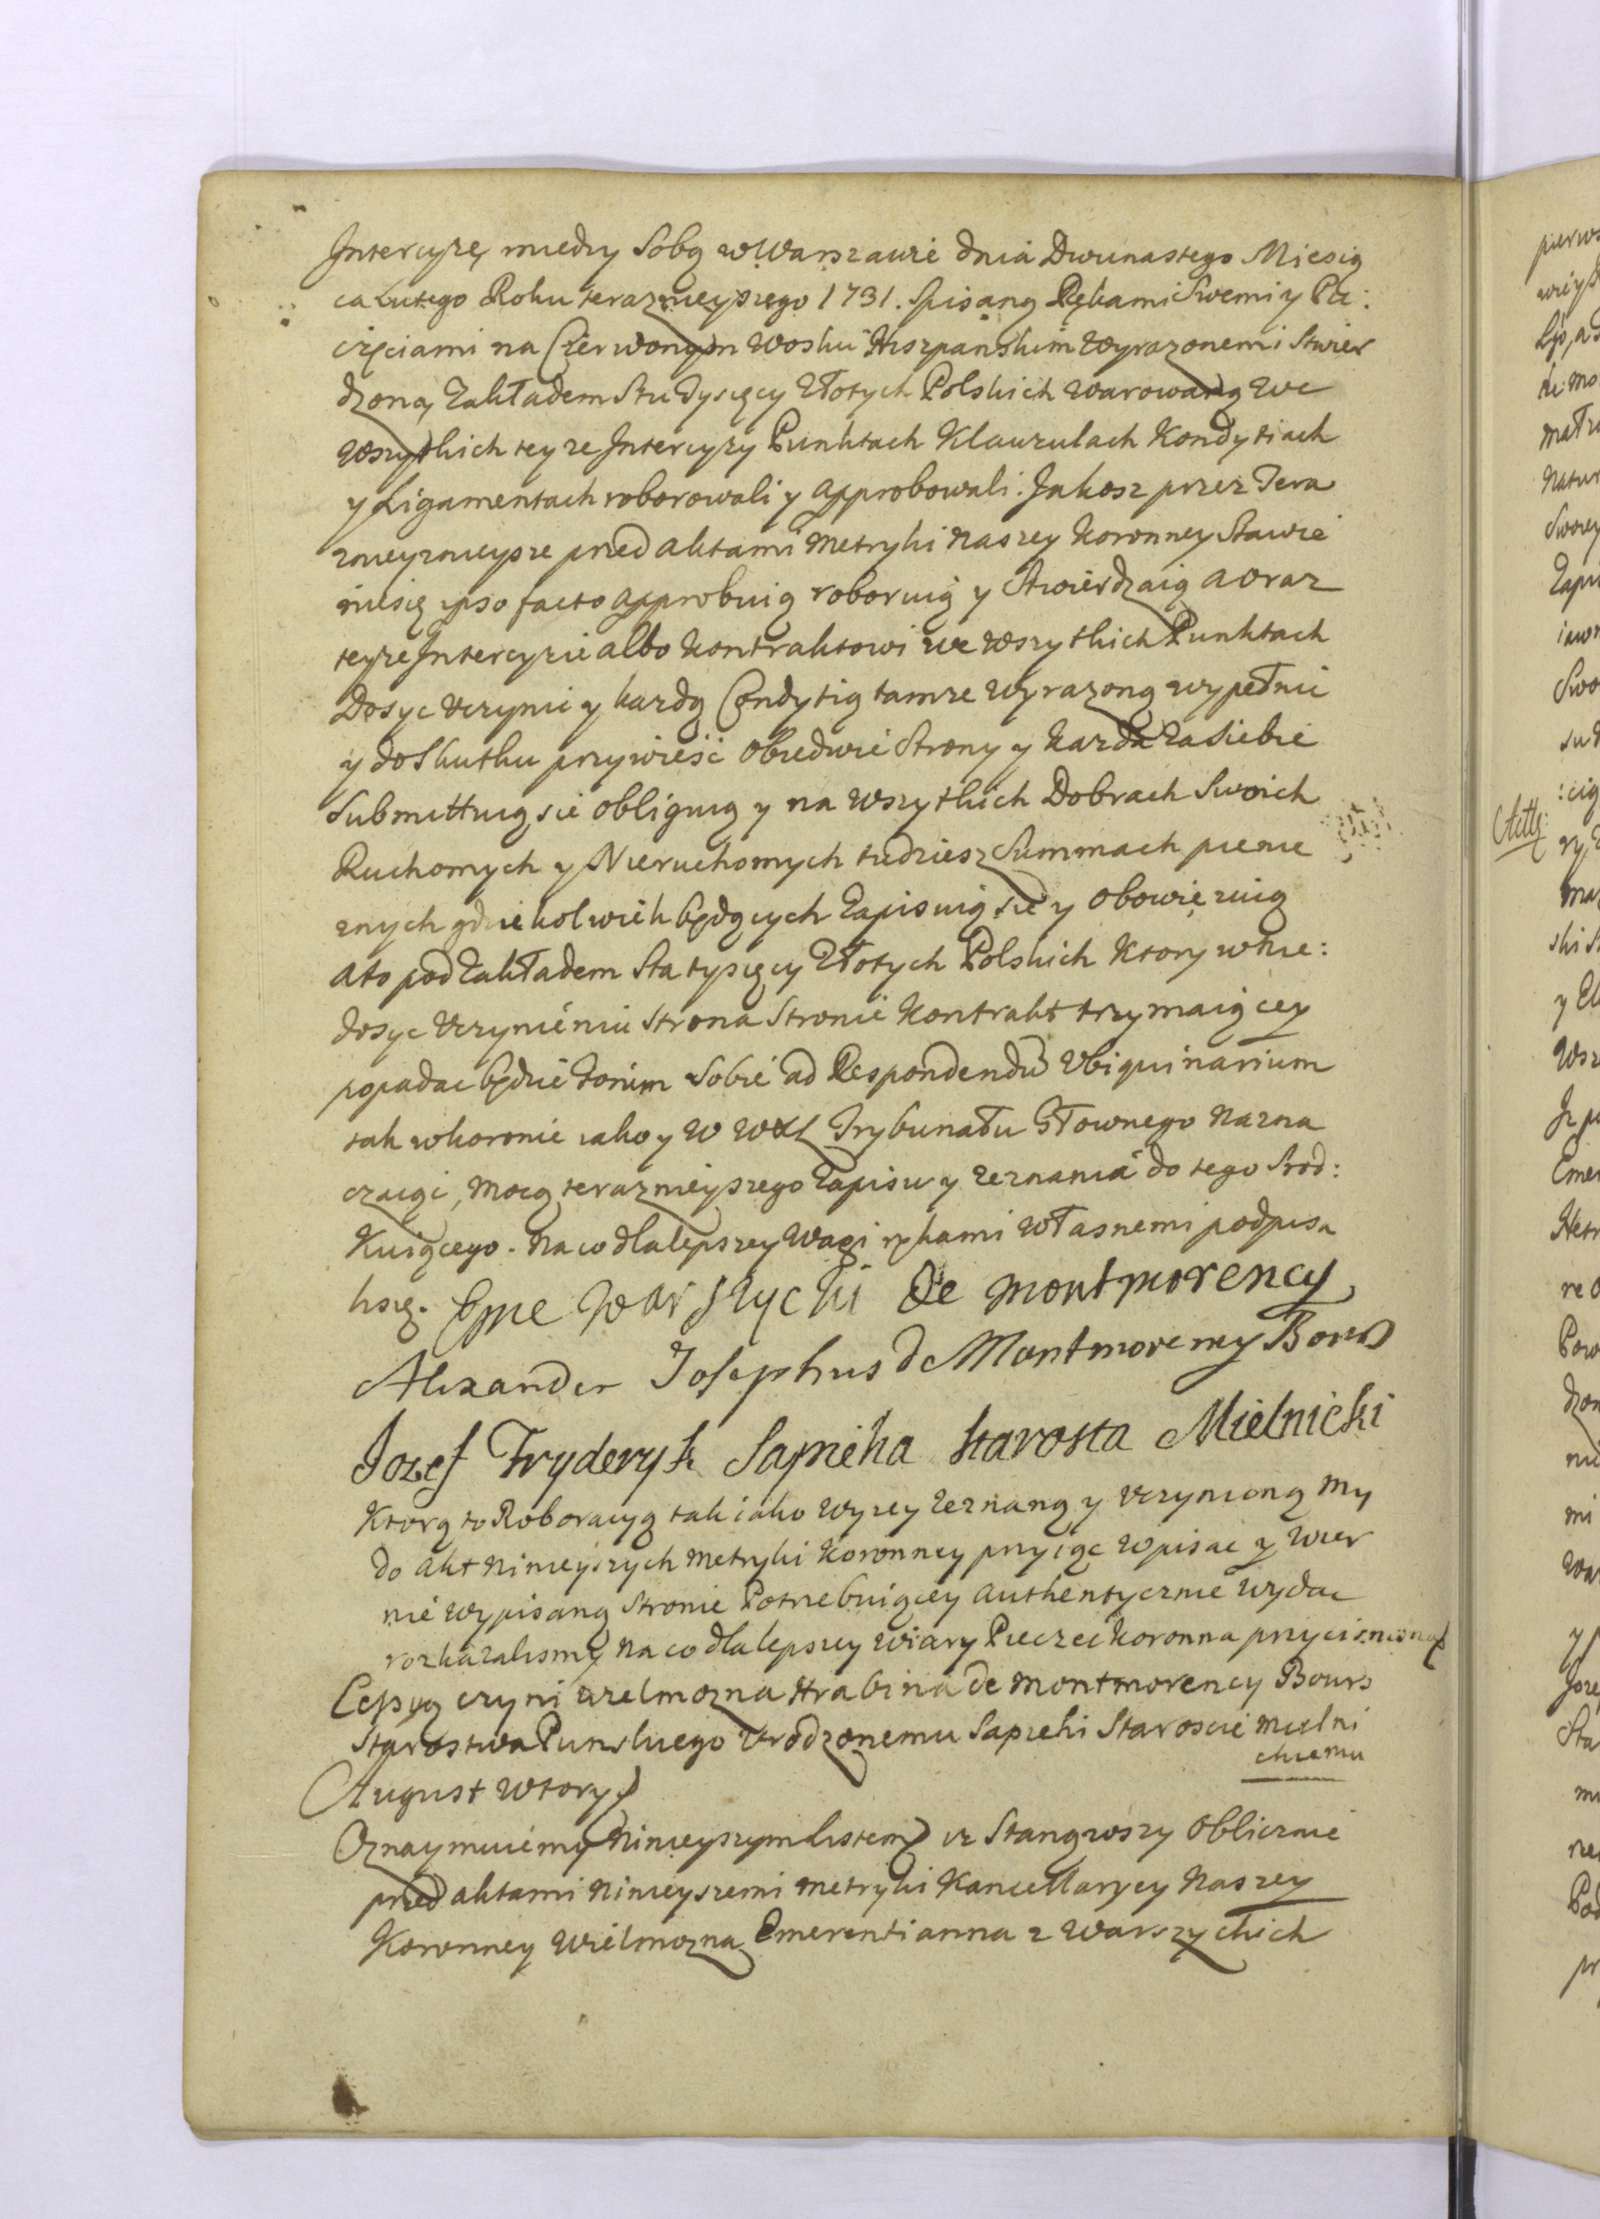 Intercyzę miedzy Sobą w Warszawie dnia Dwunastego Miesią
ca Lutego Roku terazneyszego 1731. Spisaną Rękami Swemi y Pie:
częciami na Czerwonym Wosku Hiszpanskim wyrazonemi Stwier
dzoną Zakładem Stu Tysięcy Złotych Polskich warowaną we
wszytkich teyze Intercyzy Punktach Klauzulach Kondytiach
y Ligamentach roborowali y approbowali. Jakosz przez Tera
znieysze przed aktami Metryki Naszey Koronney Stawie
niesię ipso facto approbuią roboruią y Stwierdzaią a oraz
teyze Intercyzie albo Kontraktowi we wszytkich Punktach
Dosyc uczynic y kazdą Condytią tamze wyrazoną wypełnic
y do Skutku przywieść obiedwie Strony y Kazda za siebie
Submittuią sie obliguią y na wszytkich Dobrach Swoich
Ruchomych y Nieruchomych tudziesz Summach pienie
znych gdziekolwiek będących Zapisuią sie y obowięzuią
a to pod Zakładem Sta tysięcy Złotych Polskich Ktory w nie:
dosyc uczynieniu Strona Stronie Kontrakt trzymaiącey
popadac będzie Forum Sobie ad Respondendũ Ubiquinarium
tak w koronie iako y w WXL Trybunału Głownego Nazna
czaiąc, mocą terazneyszego Zapisu y zeznania do tego Srod:
Kuiącego. Na co dla lepszey Wagi rękami własnemi podpisa
li się. Eme Warszycki de montmorency
Alexander Josephus de Montmorency Bours
Jozef Fryderyk Sapieha Starosta Mielnicki
Ktorą to Roboracyą tak iako wyzey zeznaną y uczynioną My
do akt Ninieyszych Metryki Koronney przyiąc wpisac y wier
nie wypisaną Stronie Potrzebuiącey authentycznie wydac
rozkazalismy na co dla lepszey wiary Pieczec Koronna przycisniona
Cessyą czyni wielmozna Hrabina de Montmorency Bours
Starostwa Punskiego Urodzonemu Sapiehi Staroscie Mielni
ckiemu
August Wtory
Oznaymuiemy Ninieyszym Listem iz Stanąwszy oblicznie
przed aktami Ninieyszemi Metryki Kancellaryey Naszey
Koronney wielmozna Emerentianna z Warszyckich
Actū